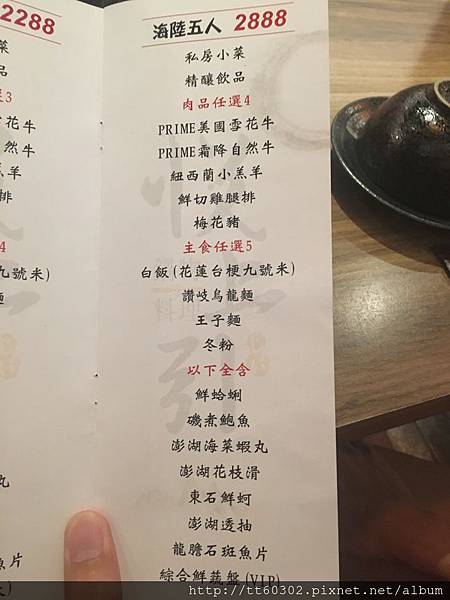 2288
菜
品
選3
雪花牛
自然牛
小羔羊
腿排
4
九號米)
麵
丸
魚片
海陸五人 2888
私房小菜
精釀飲品
肉品任選4
PRIME美國雪花牛
PRIME霜降自然牛
紐西蘭小羔羊
鮮切雞腿排
梅花豬
主食任選5
白飯(花蓮台梗九號米)
讚岐烏龍麵
王子麵
冬粉
以下全含
鮮蛤蜊
磯煮鮑魚
澎湖海菜蝦丸
澎湖花枝滑
東石鮮蚵
澎湖透抽
龍膽石斑魚片
綜合鮮蔬盤(VIP)
http://tt60302.pixnet.net/album